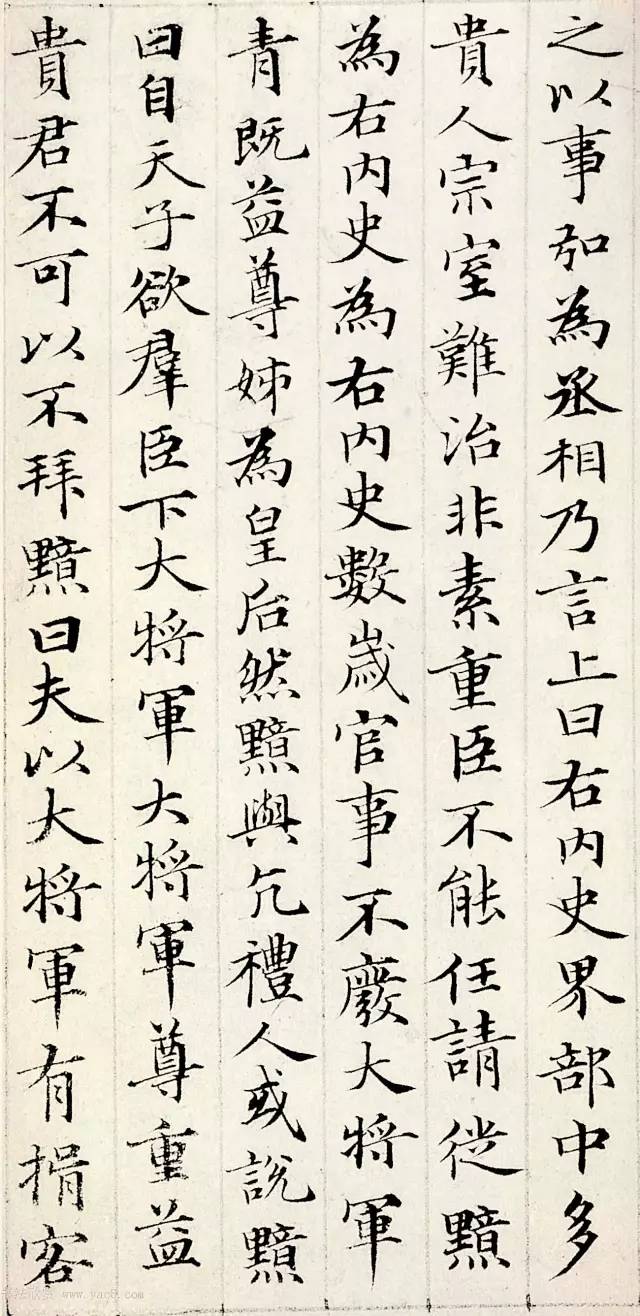 之以事弘為丞相乃言上曰右内史界部中多
貴人宗室難治非素重臣不能任請従黯
為右内史為右内史數歲官事不廢大将軍
青既益尊姊為皇后然黯與亢禮人或説黯
曰自天子欲羣臣下大将軍大将軍尊重益
貴君不可以不拜黯曰夫以大将軍有揖客